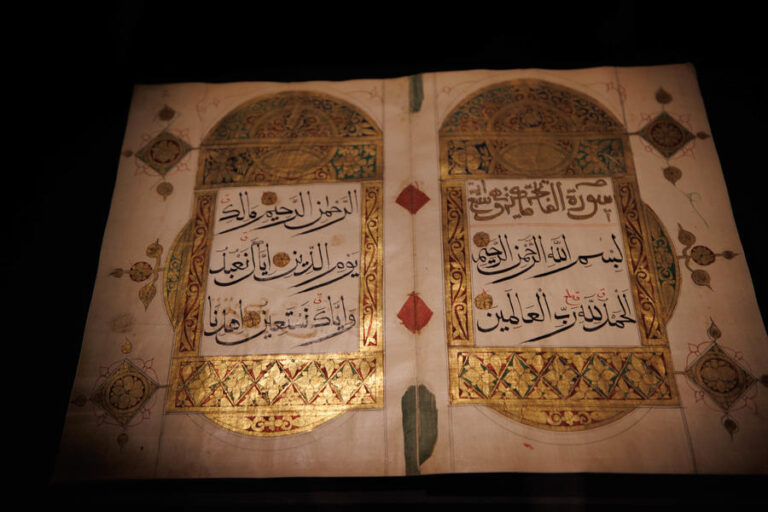 سورة الفاتحة
بِسْمِ اللَّهِ الرَّحْمَنِ الرَّحِيمِ
الْحَمْدُ لِلَّهِ رَبِّ الْعَالَمِينَ
الرَّحْمَنِ الرَّحِيمِ مَالِكِ
يَوْمِ الدِّينِ إِيَّاكَ نَعْبُدُ
وَإِيَّاكَ نَسْتَعِينُ اهْدِنَا